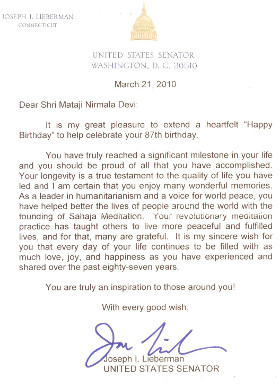 JOSEPH I. LIEBERMAN
CONNECTICUT
UNITED STATES SENATOR
WASHINGTON, D. C. 20510
March 21, 2010
Dear Shri Mataji Nirmala Devi:
It is my great pleasure to extend a heartfelt "Happy
Birthday" to help celebrate your 87th birthday.
You have truly reached a significant milestone in your life
and you should be proud of all that you have accomplished.
Your longevity is a true testament to the quality of life you have
led and I am certain that you enjoy many wonderful memories.
As a leader in humanitarianism and a voice for world peace, you
have helped better the lives of people around the world with the
founding of Sahaja Meditation. Your revolutionary meditation
practice has taught others to live more peaceful and fulfilled
lives, and for that, many are grateful. It is my sincere wish for
you that every day of your life continues to be filled with as
much love, joy, and happiness as you have experienced and
shared over the past eighty-seven years.
You are truly an inspiration to those around you!
With every good wish,
Joseph I. Lieberman
UNITED STATES SENATOR